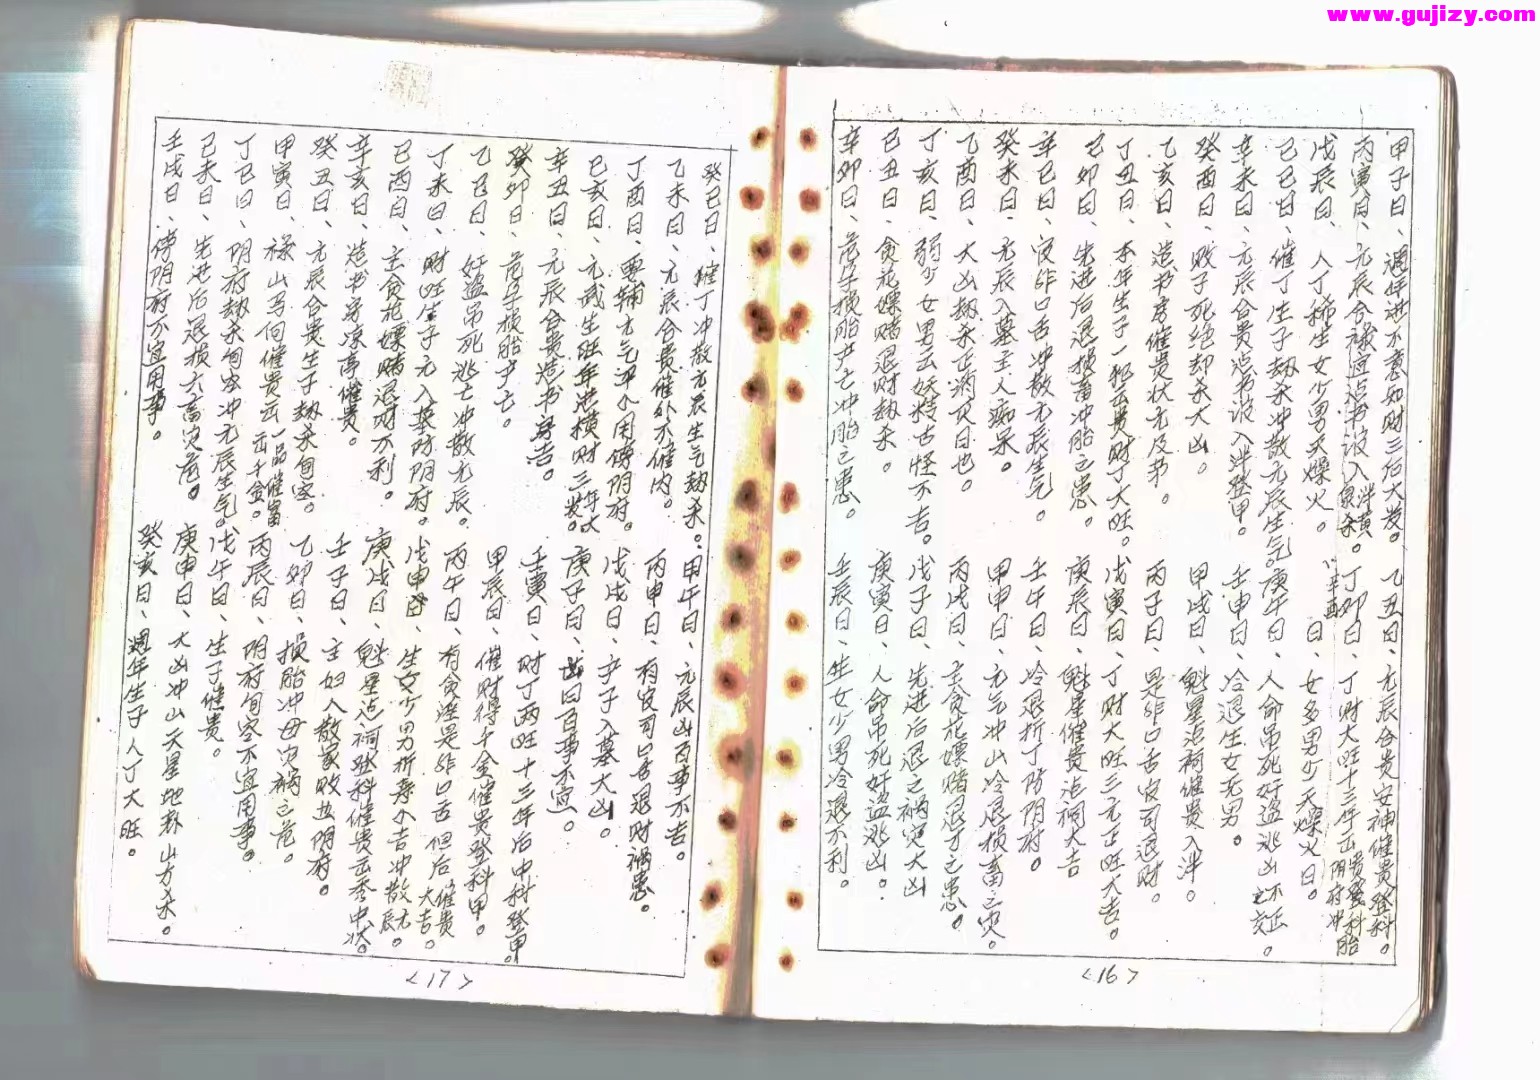 www.gujizy.com
甲子日、週年进不意如财三后大发。乙丑日、元辰合贵安神催贵登科。
丙寅日、元辰合禄宜造书设入泮。丁卯日、丁财大旺十三年出贵發科
戊辰日、人丁稀生女少男夭燥火。日、女多男少夭燥火日。
己巳日、催丁生子劫杀冲散元辰生气。庚午日、人命吊死奸盗逃凶不正
辛未日、元辰合贵造书设入泮登甲。壬申日、冷退生女无男。
癸酉日、败子死绝却杀大凶。甲戌日、魁星造祠催贵入泮。
乙亥日、造书房催贵状元及第。丙子日、是非口舌官司退财。
丁丑日、本年生子一积出贵财丁大旺。戊寅日、丁财大旺三元正旺大吉。
己卯日、先进后退损畜冲胎之患。庚辰日、魁星催贵造祠大吉
辛巳日、官非口舌冲散元辰生气。壬午日、冷退折丁防阴府。
癸未日、元辰入墓主人痴呆。甲申日、元气冲山冷退损畜之灾。
乙酉日、大凶劫杀正消灭日也。丙戌日、主贪花嫖赌退才之患。
丁亥日、弱少女男云妖特古怪不吉。戊子日、先进后退之祸灾大凶
己丑日、贪花嫖赌退财劫杀。庚寅日、人命吊死奸盗逃凶。
辛卯日、范孕损胎产亡冲胎之患。壬辰日、生女少男冷退不利。
<16>
癸巳日、催丁冲散元辰生气劫杀。甲午日、元辰凶百事不吉。
乙未日、元辰合贵催外不催内。丙申日、有官司口舌退财祸患。
丁酉日、要辅元气平个用傍阴府。戊戌日、产子入墓大凶。
己亥日、元武生旺年进横财三年大发。庚子日、凶日百事不宜。
辛丑日、元辰合贵造书房吉。壬寅日、财丁两旺十三年后中科登甲。
癸卯日、范孕损胎产亡。甲辰日、催财得千金催贵登科甲。
乙巳日、奸盗吊死逃亡冲散元辰。丙午日、有贪淫是非口舌但后催贵大吉。
丁未日、财旺生子元入墓防阴府。戊申日、生女少男折寿不吉冲散元辰。
己酉日、主贪花嫖赌退财不利。庚戌日、魁星造祠登科催贵出秀中状。
辛亥日、造书房凉亭催贵。壬子日、主妇人散家败且阴府。
癸丑日、元辰合贵生子劫杀旬空。乙卯日、损胎冲母灾祸之危。
甲寅日、禄山马向催贵云一品催富云千金。丙辰日、阴府旬空不宜用事。
丁巳日、阴府劫杀旬空冲元辰生气。戊午日、生子催贵。
己未日、先进后退损六畜灾危。庚申日、大凶冲山天星地森山方杀。
壬戌日、傍阴府不宜用事。癸亥日、週年生子人丁大旺。
<17>